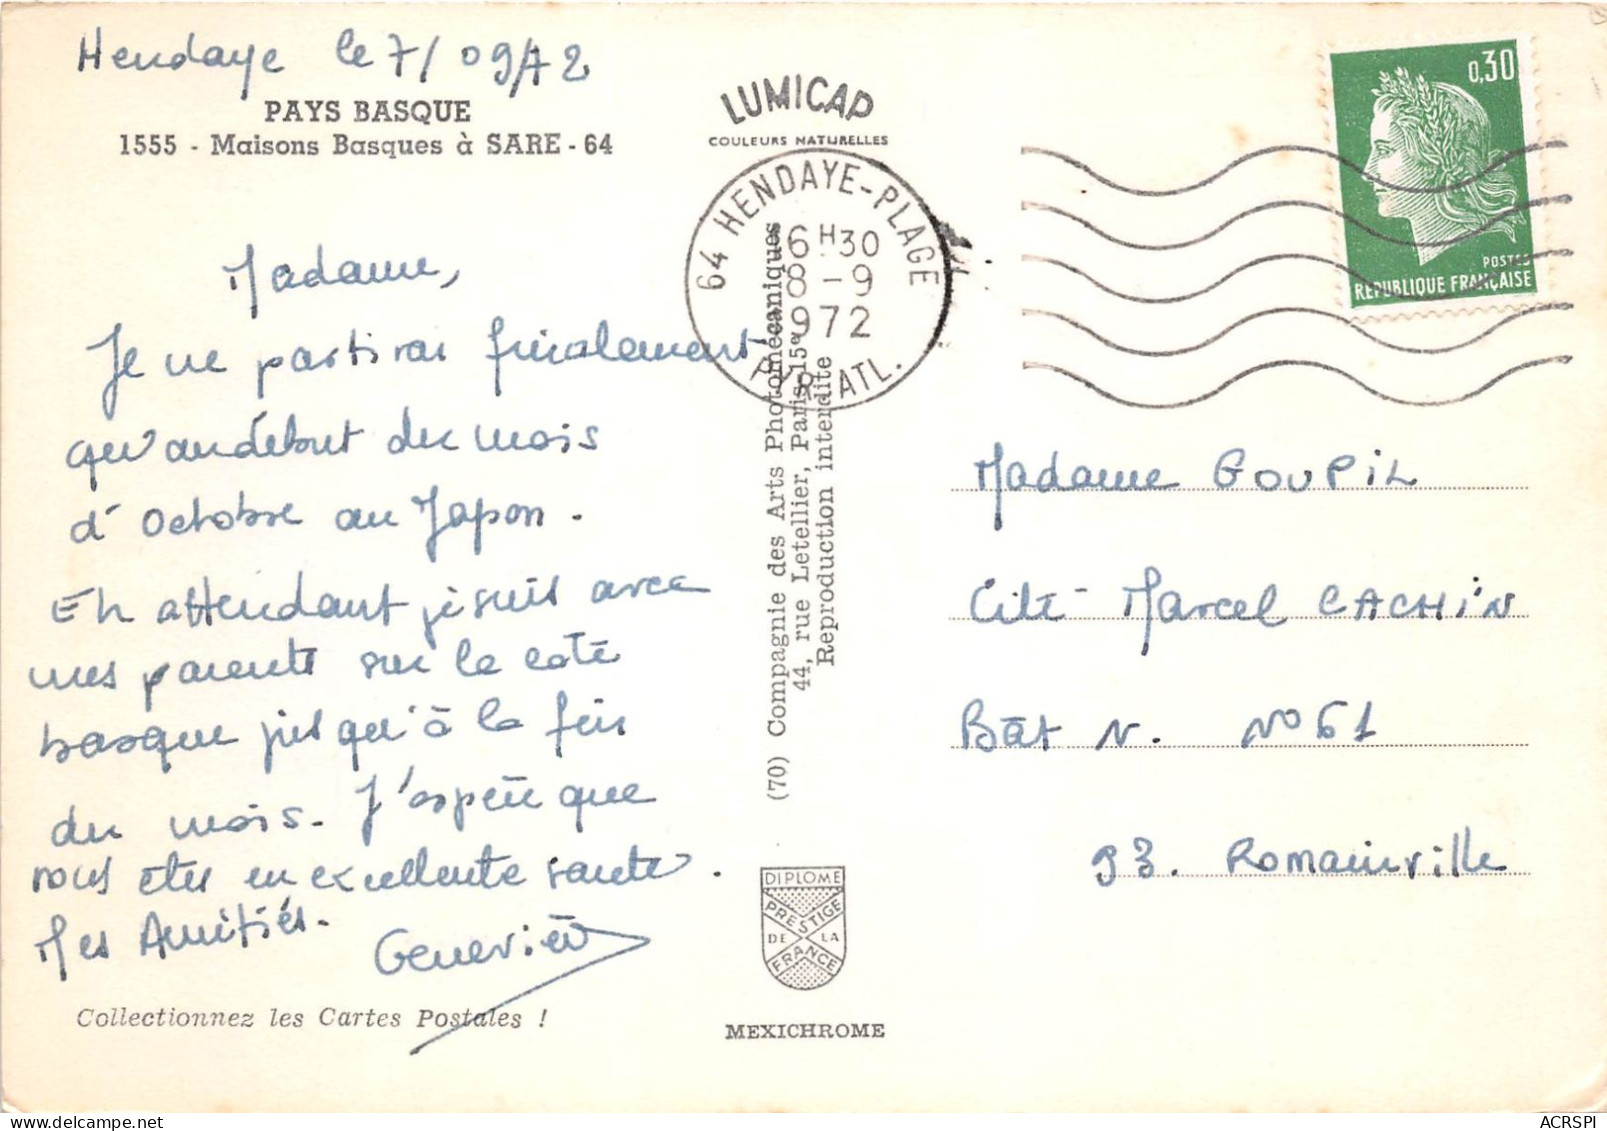 Hendaye le 7/09/72
PAYS BASQUE
1555 - Maisons Basques à SARE - 64
Madame,
Je ne partirai finalement
qu'au début du mois
d'Octobre au Japon.
En attendant je suis avec
mes parents sur la coté
basque jusqu'à la fin
du mois. J'espère que
vous etes en excellente santé.
Mes Amitiés.
Geneviève
Collectionnez les Cartes Postales !
LUMICAP
COULEURS NATURELLES
64 HENDAYE-PLAGE
6H30
8 -9
1972
PYR. ATL.
(70) Compagnie des Arts Photomécaniques
44, rue Letellier, Paris-15e
Reproduction interdite
DIPLOME
PRESTIGE
DE LA
FRANCE
MEXICHROME
0,30
POSTES
REPUBLIQUE FRANÇAISE
Madame GOUPIL
Cité Marcel CACHIN
Bât N. N° 61
93. Romainville
ACRSPI